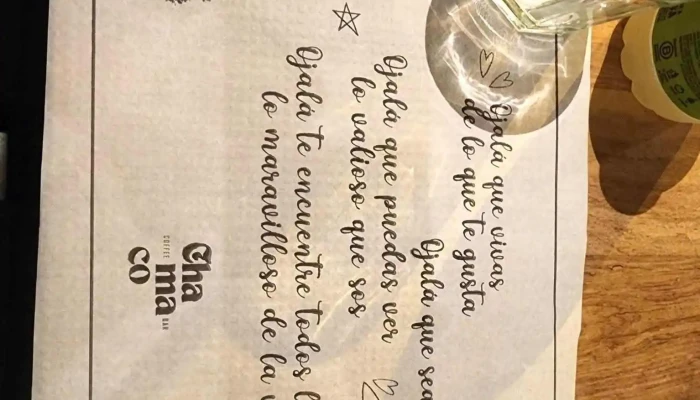 Ojalá que vivas
de lo que te gusta
Ojalá que sea
Ojalá que puedas ver
lo valioso que sos
Ojalá te encuentre todos
lo maravilloso de la
Cha
COFFEE ma BAR
co